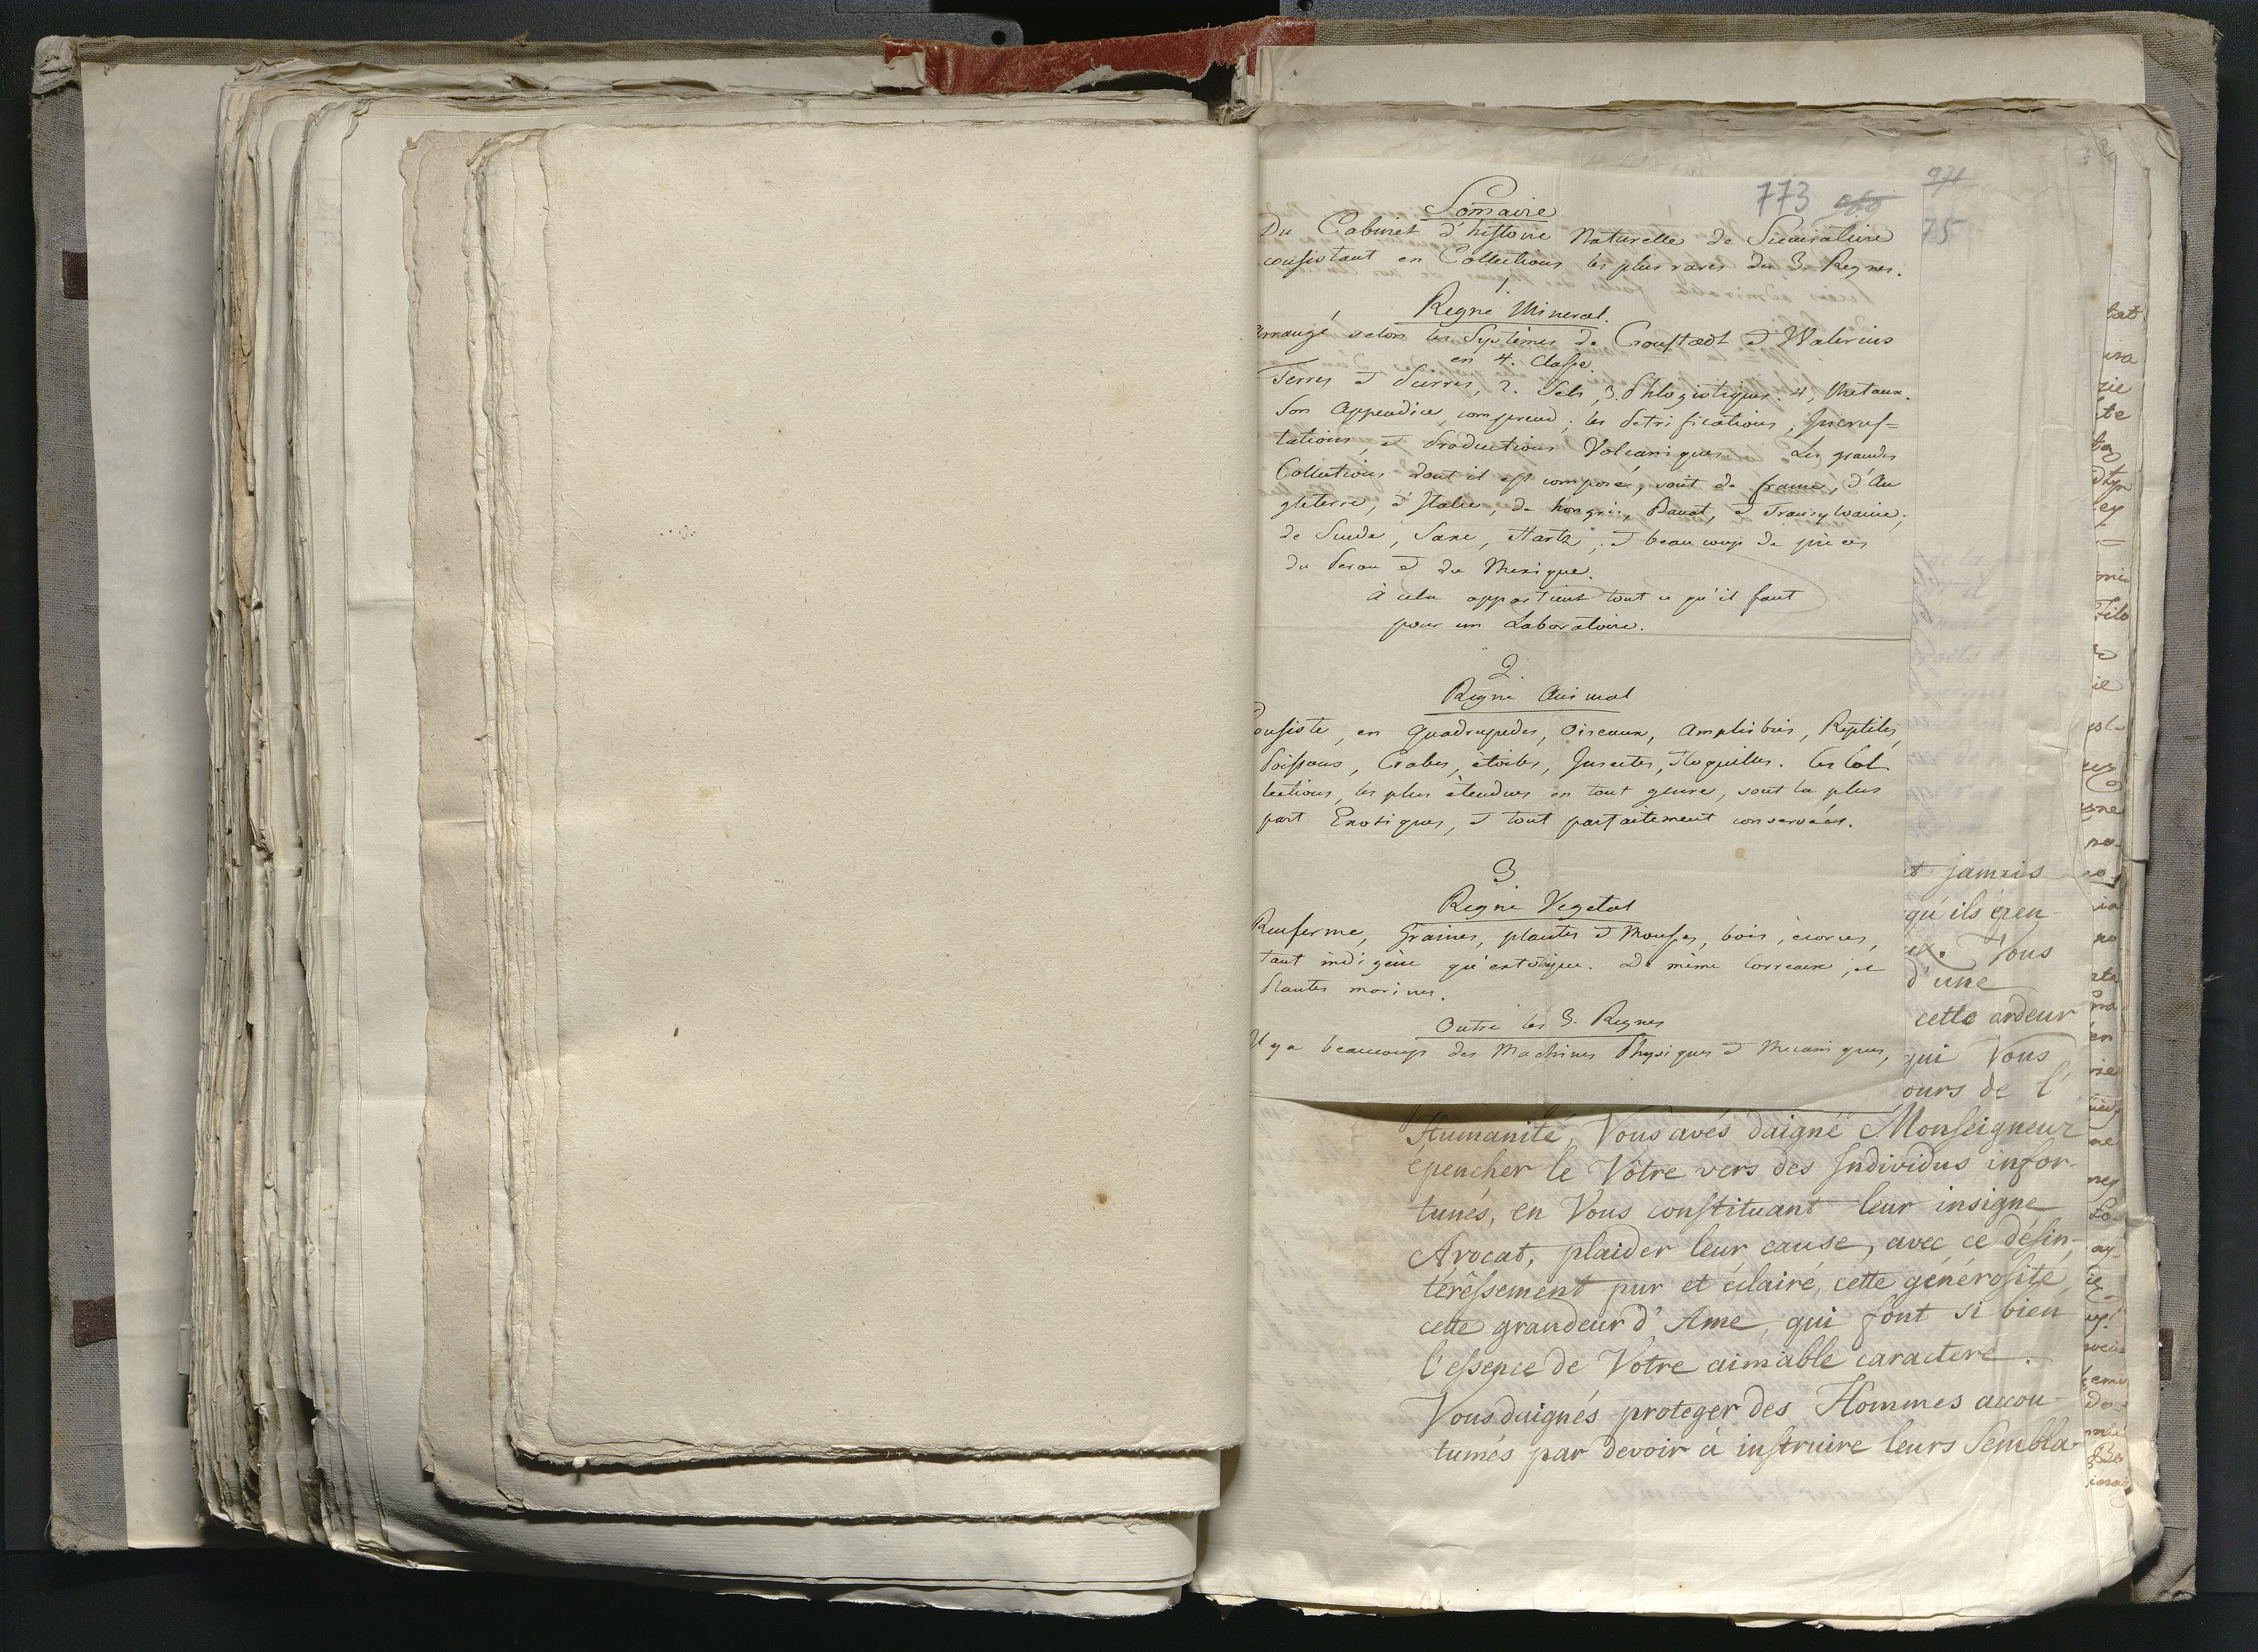 773 969
971
75
Somaire
Du Cabinet d'histoire Naturelle de Siemiatine
consistant en Collections les plus rares des 3. Regnes.
1.
Regne Mineral.
Arrangé selon les Systèmes de Cronstædt et Walerius
en 4. Classe.
Terres et Pierres, 2. Sels, 3. Phlogistiques. 4, Metaux.
Son Appendice comprend, les Petrifications, Incrus=
tations, et Productions Volcaniques. Les grandes
Collections dont il est composé, sont de france, d'An
gleterre, d'Italie, de hongrie, Banat, et Transylvanie,
de Suede, Saxe, Hartz, et beaucoup de pièces
du Perou et du Mexique.
à cela appartient tout ce qu'il faut
pour un Laboratoire.
2.
Regne Animal
Consiste, en Quadrupedes, Oiseaux, Amphibies, Reptiles,
Poissons, Crabes, étoiles, Insectes, Coquilles. Ces Col
lections les plus étendues en tout genre, sont la plus
part Exotiques, et tout parfaitement conservées.
3
Regne Vegetal
Renferme, Graines, plantes et Mousses, bois, écorces,
tant indigène qu'exotique. De même Correaux, et
Plantes marines.
Outre les 3. Regnes
Il y a beaucoup des Machines Physiques et Mecaniques,
t jamais
qu'ils épen-
ux. Vous
d'une
cette ardeur
qui Vous
ours de l'
Humanité, Vous avés daigné Monseigneur
épencher le Vôtre vers des Individus infor-
tunés, en Vous constituant leur insigne
Avocat, plaider leur cause, avec ce désin-
téressement pur et éclairé, cette générosité,
cette grandeur d'Ame, qui font si bien
l'essence de Votre aimable caractere.
Vous daignés proteger des Hommes accou-
tumés par devoir à instruire leurs Sembla-